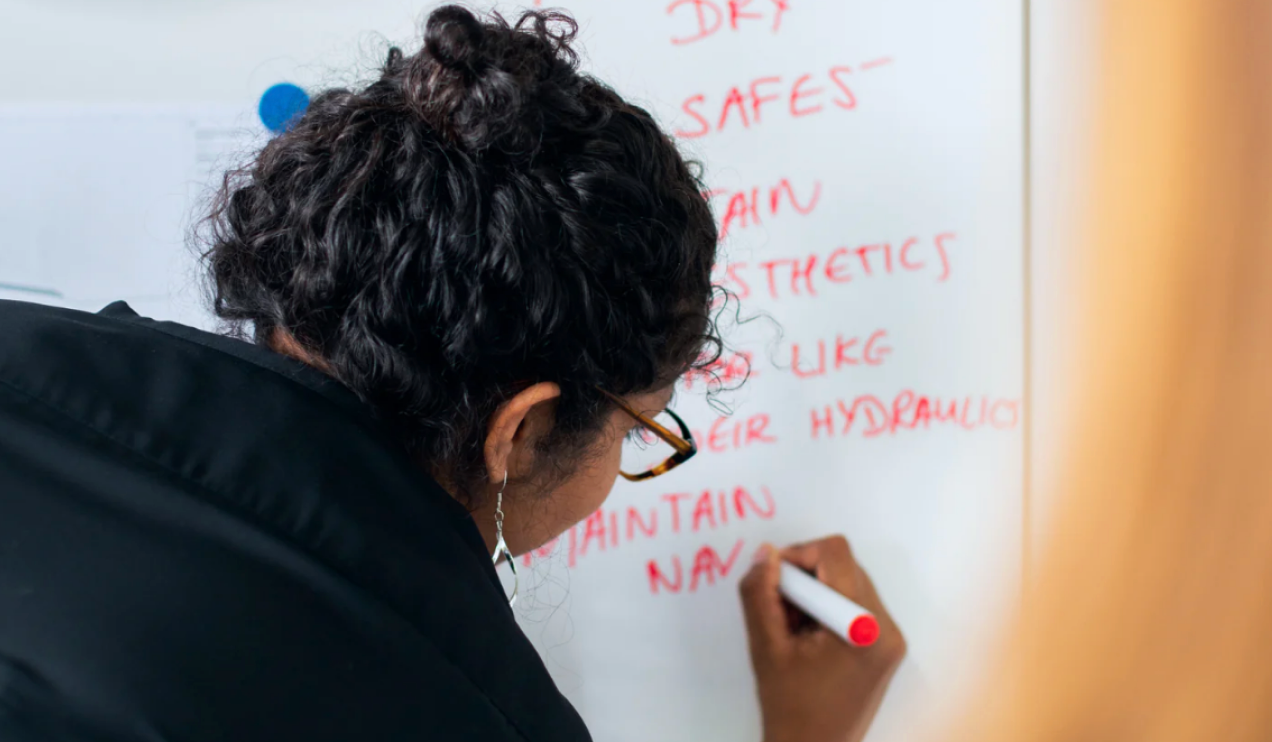 DRY
SAFEST
TAIN
STHETICS
LIKE
HYDRAULICS
MAINTAIN
NAV